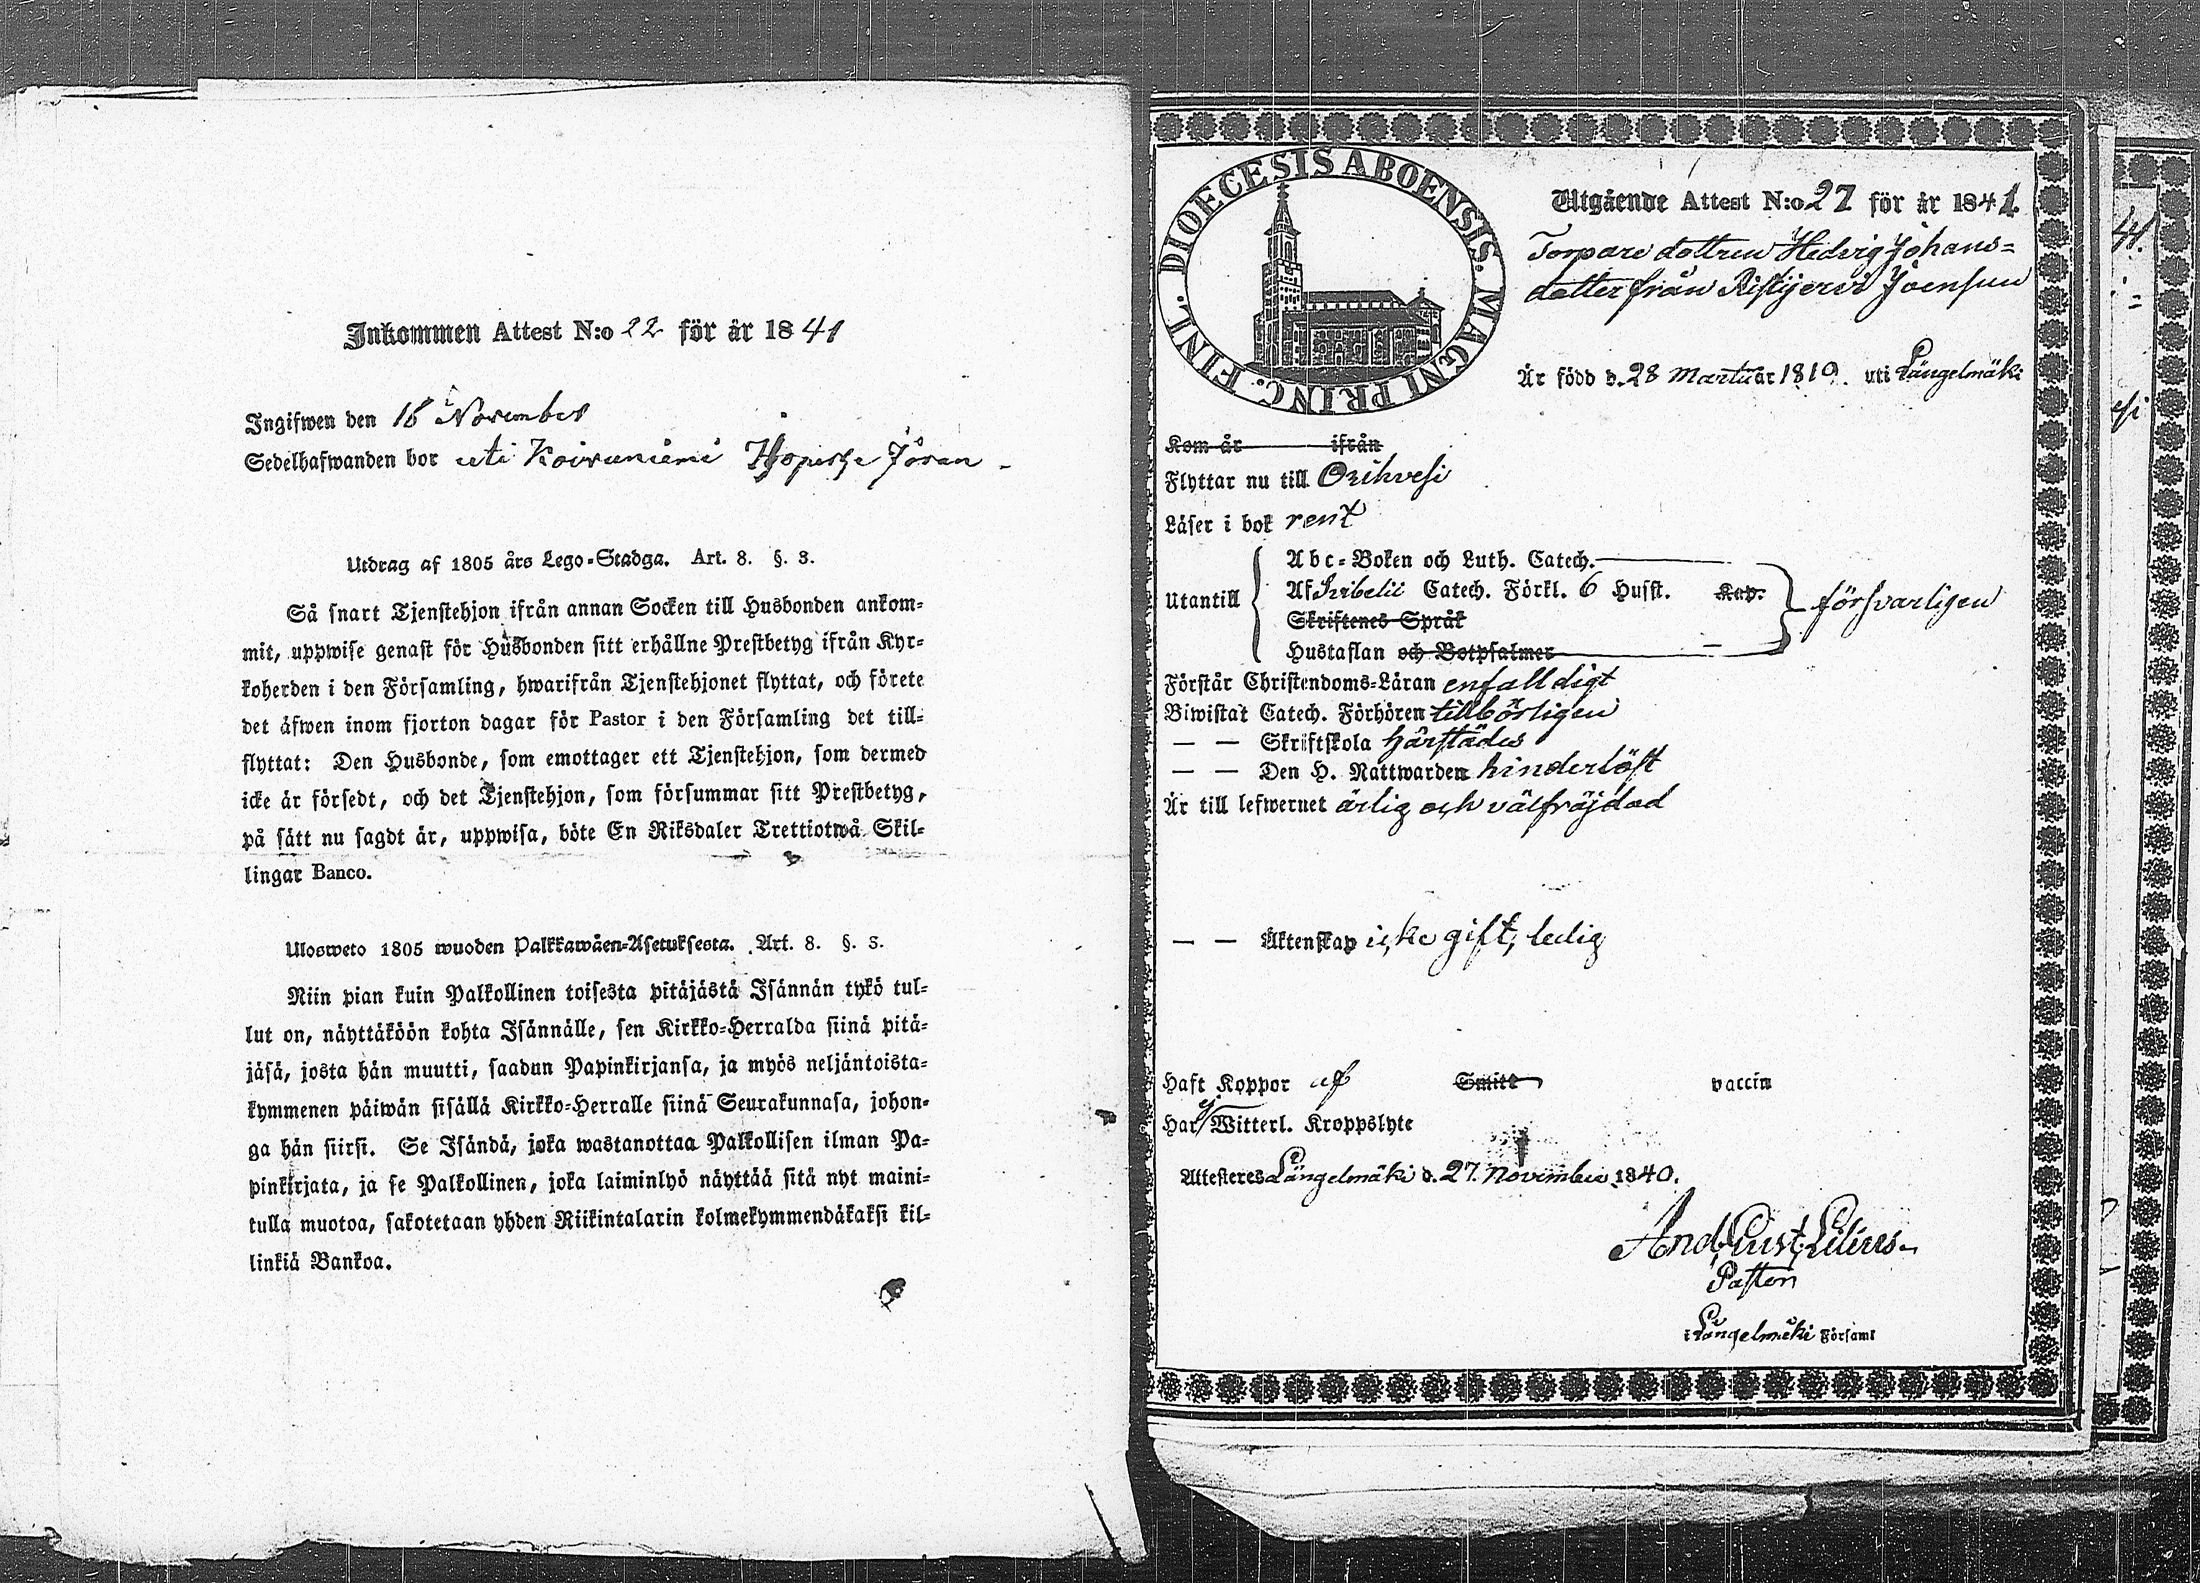 Inkommen Attest N:o 22 för år 1841
Ingifwen den 16 November
Sedelhafwanden bor uti Koivuniemi Jöran
Utdrag af 1805 års Lego-Stadga. Art. 8. §. 3.
Så snart Tjenstehjon ifrån annan Socken till Husbonden ankom-
mit, uppwise genast för Husbonden sitt erhållne Prestbetyg ifrån Kyr-
koherden i den Församling, hwarifrån Tjenstehjonet flyttat, och förete
det äfwen inom fjorton dagar för Pastor i den Församling det till-
flyttat: Den Husbonde, som emottager ett Tjenstehjon, som dermed
icke är försedt, och det Tjenstehjon, som försummar sitt Prestbetyg,
på sätt nu sagdt är, uppwisa, böte En Riksdaler Trettiotwå Skil-
lingar Banco.
Ulosweto 1805 wuoden Palkkawäen-Asetuksesta. Art. 8. §. 3.
Niin pian kuin Palkollinen toisesta pitäjästä Isännän tykö tul-
lut on, näyttäköön kohta Isännälle, sen Kirkko-Herralda siinä pitä-
jäsä, josta hän muutti, saadun Papinkirjansa, ja myös neljäntoista-
kymmenen päiwän sisällä Kirkko-Herralle siinä Seurakunnasa, johon-
ga hän siirsi. Se Isändä, joka wastanottaa Palkollisen ilman Pa-
pinkirjata, ja se Palkollinen, joka laiminlyö näyttää sitä nyt maini-
tulla muotoa, sakotetaan yhden Riikintalarin kolmekymmendäkaksi kil-
linkiä Bankoa.
DIOECESIS ABOENSIS. MAGNI PRINC. FINL.
Utgående Attest N:o 27 för år 1841.
Torpare dottren Hedvig Johans-
dotter från Ristijervi Joensuu
Är född d. 28 Martii år 1819. uti Längelmäki
Kom år ifrån
Flyttar nu till Orihvesi
Läser i bok rent
Utantill
Abc-Boken och Luth. Catech.
Af Svebelii Catech. Förkl. 6 Husst. Kap.
Skriftenes Språk
Hustaflan och Botpsalmer
försvarligen
Förstår Christendoms-Läran enfalldigt
Biwistat Catech. Förhören tillbörligen
— — Skriftskola härstädes
— — Den H. Nattwarden hinderlöst
Är till lefwernet ärlig och välfräjdad
— — Äktenskap icke gift, ledig
Haft Koppor af Smitt vaccin
Har ej Witterl. Kroppslyte
Attesteres Längelmäki d. 27. November 1840.
And Gust Lilius
Pastor
i Längelmäki Församl